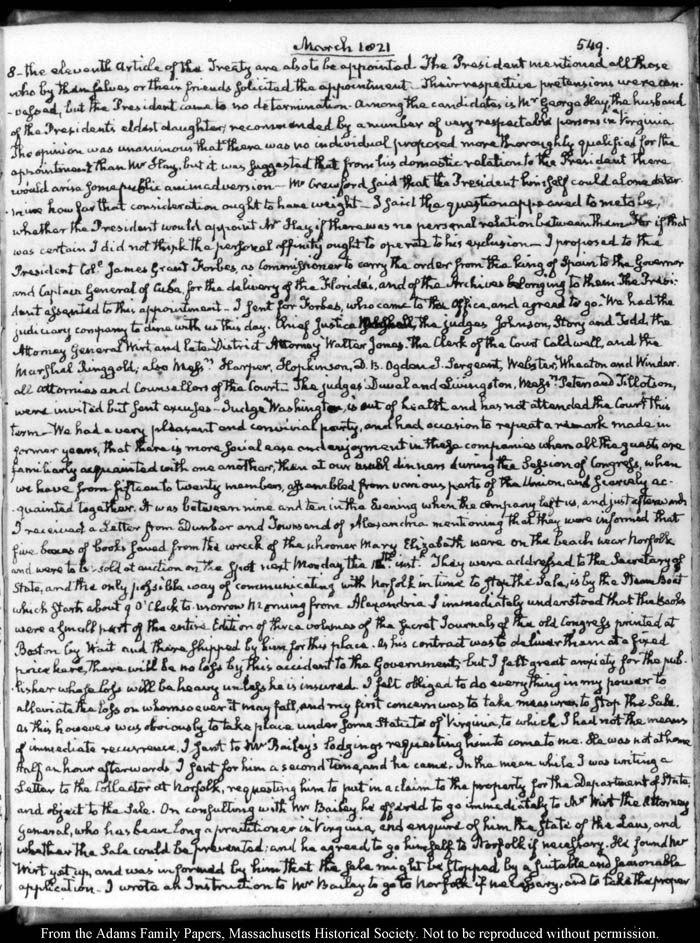 March 1821
549.
8- the eleventh Article of the Treaty are also to be appointed. The President mentioned all those
who by themselves or their friends solicited the appointment. Their respective pretensions were can-
-vassed, but the President came to no determination. Among the candidates is Mr George Hay, the husband
of the President's eldest daughter, recommended by a number of very respectable persons in Virginia
The opinion was unanimous that there was no individual proposed more thoroughly qualified for the
appointment than Mr Hay, but it was suggested that from his domestic relation to the President there
would arise some public animadversion— Mr Crawford said that the President himself could alone deter-
-mine how far that consideration ought to have weight— I said the question appeared to me to be,
whether the President would appoint Mr Hay if there was no personal relation between them. For if that
was certain I did not think the personal affinity ought to operate to his exclusion— I proposed to the
President Colo. James Grant Forbes, as Commissioner to carry the order from the King of Spain to the Governor
and Captain General of Cuba, for the delivery of the Floridas, and of the Archives belonging to them. The Presi-
dent assented to this appointment— I sent for Forbes, who came to the Office, and agreed to go. We had the
judiciary company to dine with us this day. Chief Justice Marshall, the judges Johnson, Story and Todd, the
Attorney General Wirt and late District Attorney Walter Jones. The Clerk of the Court Caldwell, and the
Marshal Ringgold; also Messrs Harper, Hopkinson, D. B. Ogden J. Sergeant, Webster, Wheaton and Winder.
all Attornies and Counsellors of the Court. The judges Duval and Livingston, Messrs Peter and Tillotson,
were invited but sent excuses— Judge Washington, is out of health and has not attended the Court this
term— We had a very pleasant and convivial party, and had occasion to repeat a remark made in
former years, that there is more social ease and enjoyment in these companies when all the guests are
familiarly acquainted with one another, than at our usual dinners during the Session of Congress, when
we have from fifteen to twenty members, assembled from various parts of the Union, and scarcely ac-
-quainted together. It was between nine and ten in the Evening when the company left us, and just afterwards
I received a Letter from Dunbar and Townsend of Alexandria mentioning that they were informed that
five boxes of books saved from the wreck of the schooner Mary Elizabeth were on the beach near Norfolk
and were to be sold at auction on the spot next Monday the inst. They were addressed to the Secretary of
State, and the only possible way of communicating with Norfolk in time to stop the Sale, is by the Steam Boat
which starts about 9 O'Clock to-morrow Morning from Alexandria. I immediately understood that the books
were a small part of the entire Edition of three volumes of the secret Journals of the old Congress printed at
Boston by Wait and there shipped by him for this place. As his contract was to deliver them at a fixed
price here, there will be no loss by this accident to the Government; but I felt great anxiety for the pub-
-lisher whose loss will be heavy unless he is insured. I felt obliged to do everything in my power to
alleviate the loss on whomsoever it may fall, and my first concern was to take measures to stop the Sale.
As this however was obviously to take place under some State Law of Virginia, to which I had not the means
of immediate recurrence, I sent to Mr Bailey's Lodgings requesting him to come to me. He was not at home
Half an hour afterwards, I sent for him a second time, and he came. In the mean while I was writing a
Letter to the Collector at Norfolk, requesting him to put in a claim to the property for the Department of State,
and object to the Sale. On consulting with Mr Bailey he offered to go immediately to Mr Wirt the Attorney
General, who has been long a practitioner in Virginia, and enquire of him the State of the Law, and
whether the Sale could be prevented; and he agreed to go himself to Norfolk if necessary. He found Mr
Wirt yet up, and was informed by him that the sale might be stopped by a suitable and seasonable
application— I wrote an Instruction to Mr Bailey to go to Norfolk if necessary, and to take the proper
From the Adams Family Papers, Massachusetts Historical Society. Not to be reproduced without permission.